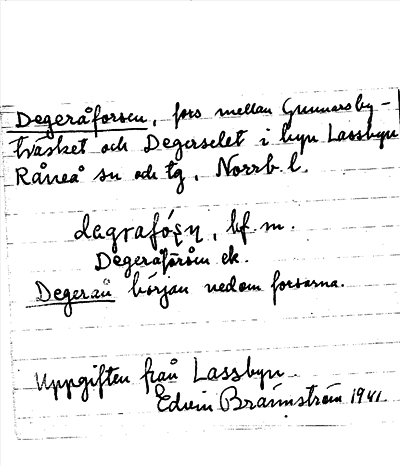 Degeråforsen, fors mellan Gunnarsby-
träsket och Degerselet i byn Lassbyn
Råneå sn och tg, Norrb. l.
dagrafó̜ṣn, bf. m.
Degeråforsen ek.
Degerån början nedom forsarna.
Uppgiften från Lassbyn
Edvin Brännström 1941.